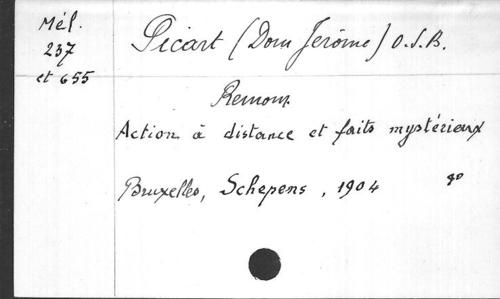 Mél.
237
et 655
Picart (Dom Jerôme) O.S.B.
Action à distance et faits mystérieux
Bruxelles, Schepens, 1904